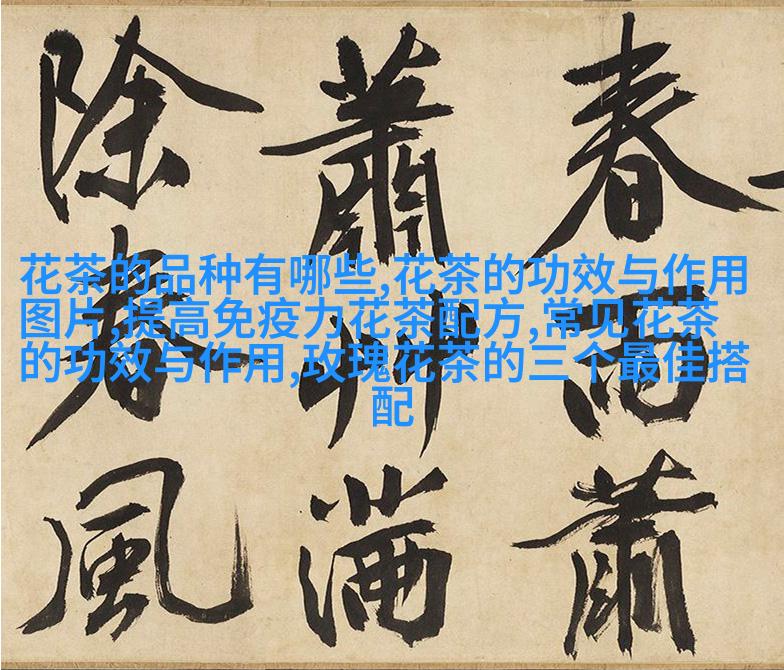 春雨蕭
蕭艸滿
除春風
花茶的品种有哪些,花茶的功效与作用
图片,提高免疫力花茶配方,常见花茶
的功效与作用,玫瑰花茶的三个最佳搭
配